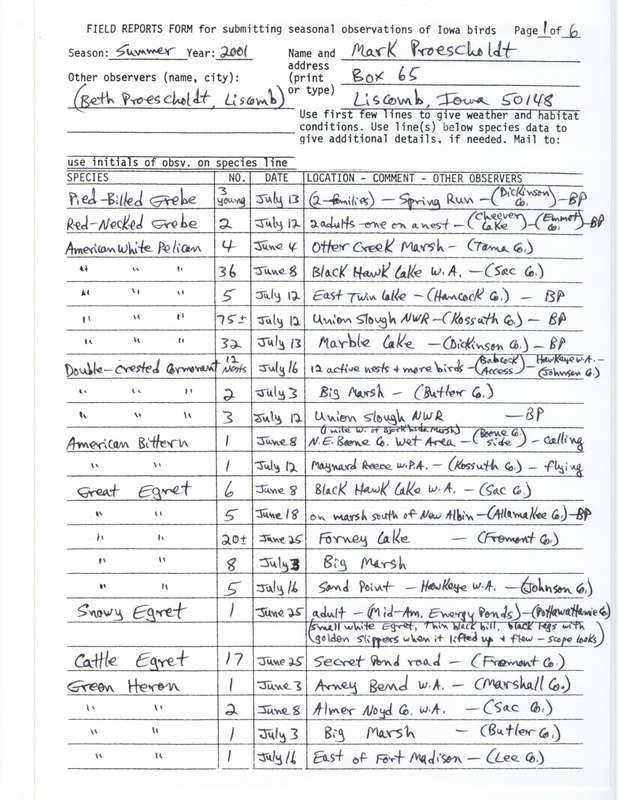 FIELD REPORTS FORM for submitting seasonal observations of Iowa birds Page 1 of 6
Season: Summer Year: 2001 Name and Mark Proescholdt
address
Other observers (name, city): (print Box 65
or type)
(Beth Proescholdt, Liscomb) Liscomb, Iowa 50148
Use first few lines to give weather and habitat
conditions. Use line(s) below species data to
give additional details, if needed. Mail to:
use initials of obsv. on species line
SPECIES NO. DATE LOCATION - COMMENT - OTHER OBSERVERS
Pied-Billed Grebe 3 young July 13 (2 families) - Spring Run - (Dickinson Co.) - BP
Red-Necked Grebe 2 July 12 2 adults - one on a nest - (Cheever Lake) - (Emmet Co.) - BP
American White Pelican 4 June 4 Otter Creek Marsh - (Tama Co.)
" " " 36 June 8 Black Hawk Lake W.A. - (Sac Co.)
" " " 5 July 12 East Twin Lake - (Hancock Co.) - BP
" " " 75± July 12 Union Slough NWR - (Kossuth Co.) - BP
" " " 32 July 13 Marble Lake - (Dickinson Co.) - BP
Double-Crested Cormorant 12 Nests July 16 12 active nests + more birds - (Babcock Access) - Hawkeye W.A. - (Johnson Co.)
" " " 2 July 3 Big Marsh - (Butler Co.)
" " " 3 July 12 Union Slough NWR - BP
(1 mile W. of Bjorkboda Marsh)
American Bittern 1 June 8 N.E. Boone Co. Wet Area - (Boone Co. side) - calling
" " 1 July 12 Maynard Reece W.P.A. - (Kossuth Co.) - flying
Great Egret 6 June 8 Black Hawk Lake W.A. - (Sac Co.)
" " 5 June 18 on marsh south of New Albin - (Allamakee Co.) - BP
" " 20± June 25 Forney Lake - (Fremont Co.)
" " 8 July 3 Big Marsh
" " 5 July 16 Sand Point - Hawkeye W.A. - (Johnson Co.)
Snowy Egret 1 June 25 adult - (Mid-Am. Energy Ponds) - (Pottawattamie Co)
(small white Egret, thin black bill, black legs with
golden slippers when it lifted up + flew - scope looks)
Cattle Egret 17 June 25 Secret Pond road - (Fremont Co.)
Green Heron 1 June 3 Arney Bend W.A. - (Marshall Co.)
" " 2 June 8 Almer Noyd Co. W.A. - (Sac Co.)
" " 1 July 3 Big Marsh - (Butler Co.)
" " 1 July 16 East of Fort Madison - (Lee Co.)